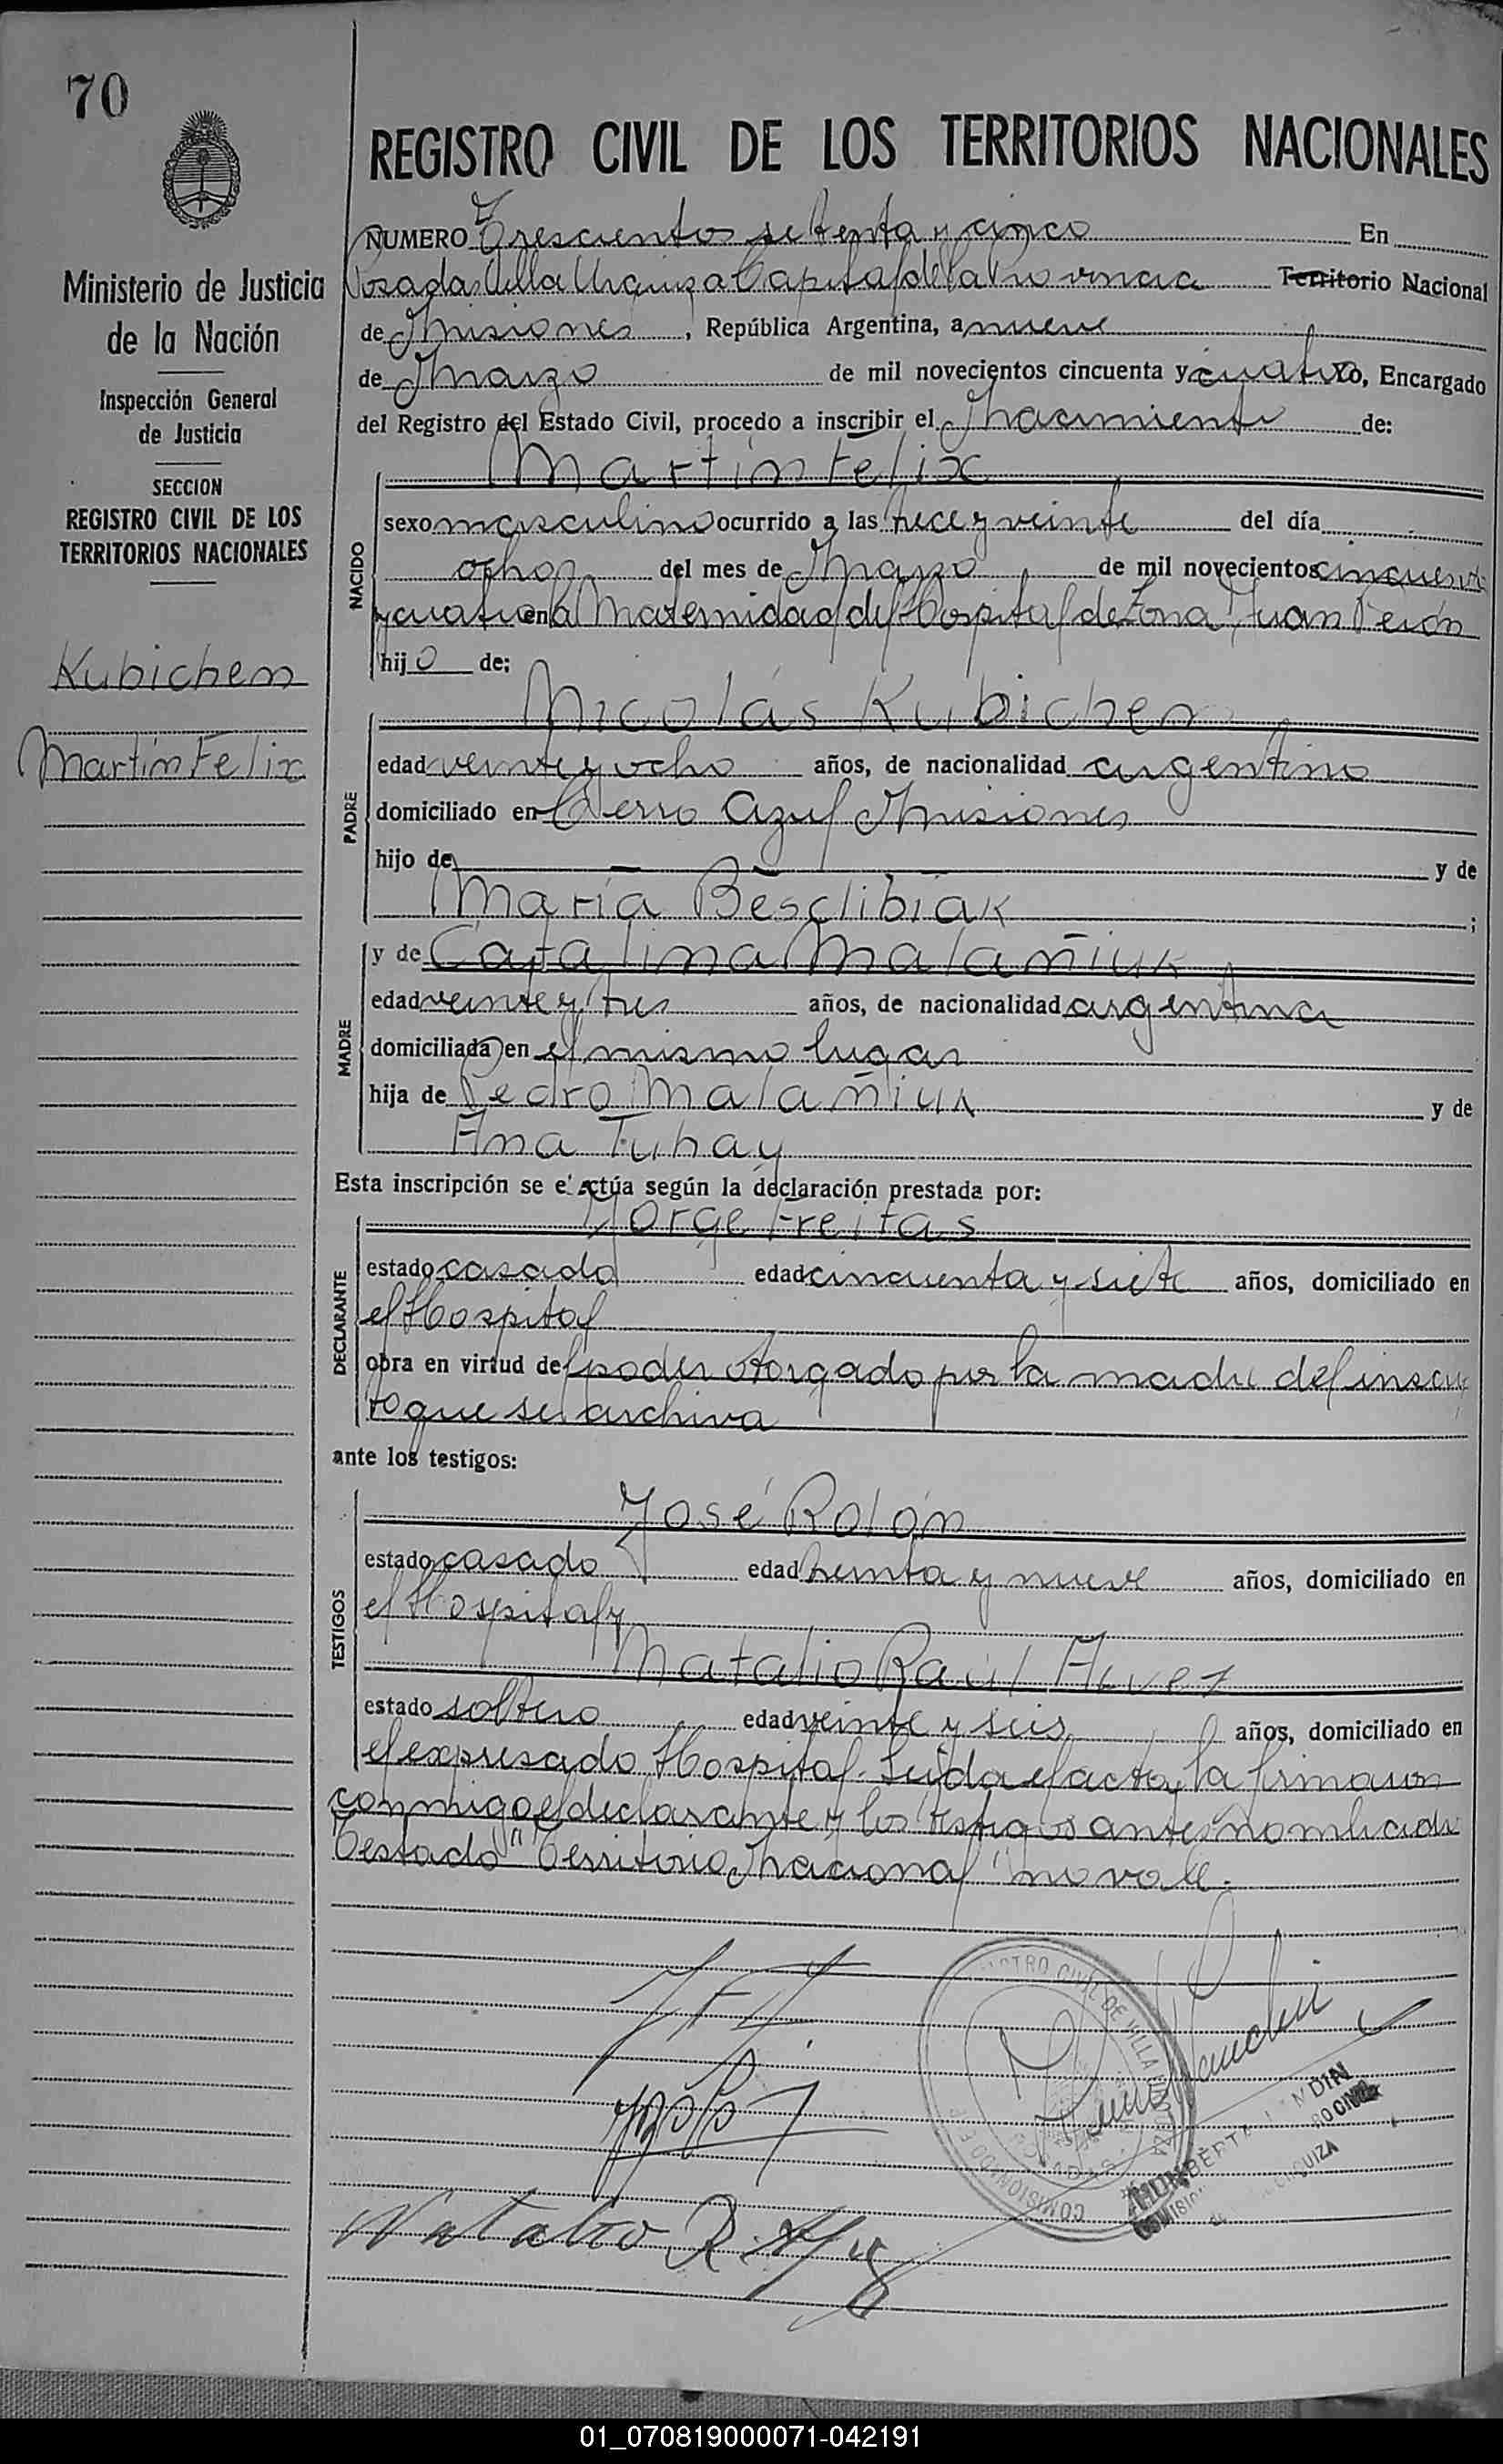 70
REGISTRO CIVIL DE LOS TERRITORIOS NACIONALES
Ministerio de Justicia
de la Nación
Inspección General
de Justicia
SECCION
REGISTRO CIVIL DE LOS
TERRITORIOS NACIONALES
Kubichen
Martín Felix
NUMERO Trescientos setenta y cinco En
Posadas Villa Urquiza Capital de la Provincia Territorio Nacional
de Misiones, República Argentina, a nueve
de Marzo de mil novecientos cincuenta y cuatro, Encargado
del Registro del Estado Civil, procedo a inscribir el Nacimiento de:
Martín Felix
NACIDO
sexo masculino ocurrido a las trece y veinte del día
ocho del mes de Marzo de mil novecientos cincuenta
y cuatro en la Maternidad del Hospital de Zona Juan Perón
hijo de;
Nicolás Kubichen
PADRE
edad veinte y ocho años, de nacionalidad argentino
domiciliado en Cerro Azul Misiones
hijo de y de
María Besclibiak ;
y de Catalina Malañiuk
MADRE
edad veinte y tres años, de nacionalidad argentina
domiciliada en el mismo lugar
hija de Pedro Malañiuk y de
Ana Tuhay
Esta inscripción se efectúa según la declaración prestada por:
Jorge Freitas
DECLARANTE
estado casado edad cincuenta y siete años, domiciliado en
el Hospital
obra en virtud del poder otorgado por la madre del inscrip
to que se archiva
ante los testigos:
José Rolón
TESTIGOS
estado casado edad treinta y nueve años, domiciliado en
el Hospital y
Natalio Raúl Alvez
estado soltero edad veinte y seis años, domiciliado en
el expresado Hospital. Leida el acta, la firmaron
conmigo el declarante y los testigos antes nombrados
Testado "Territorio Nacional" no vale.
Natalio R.
01_070819000071-042191